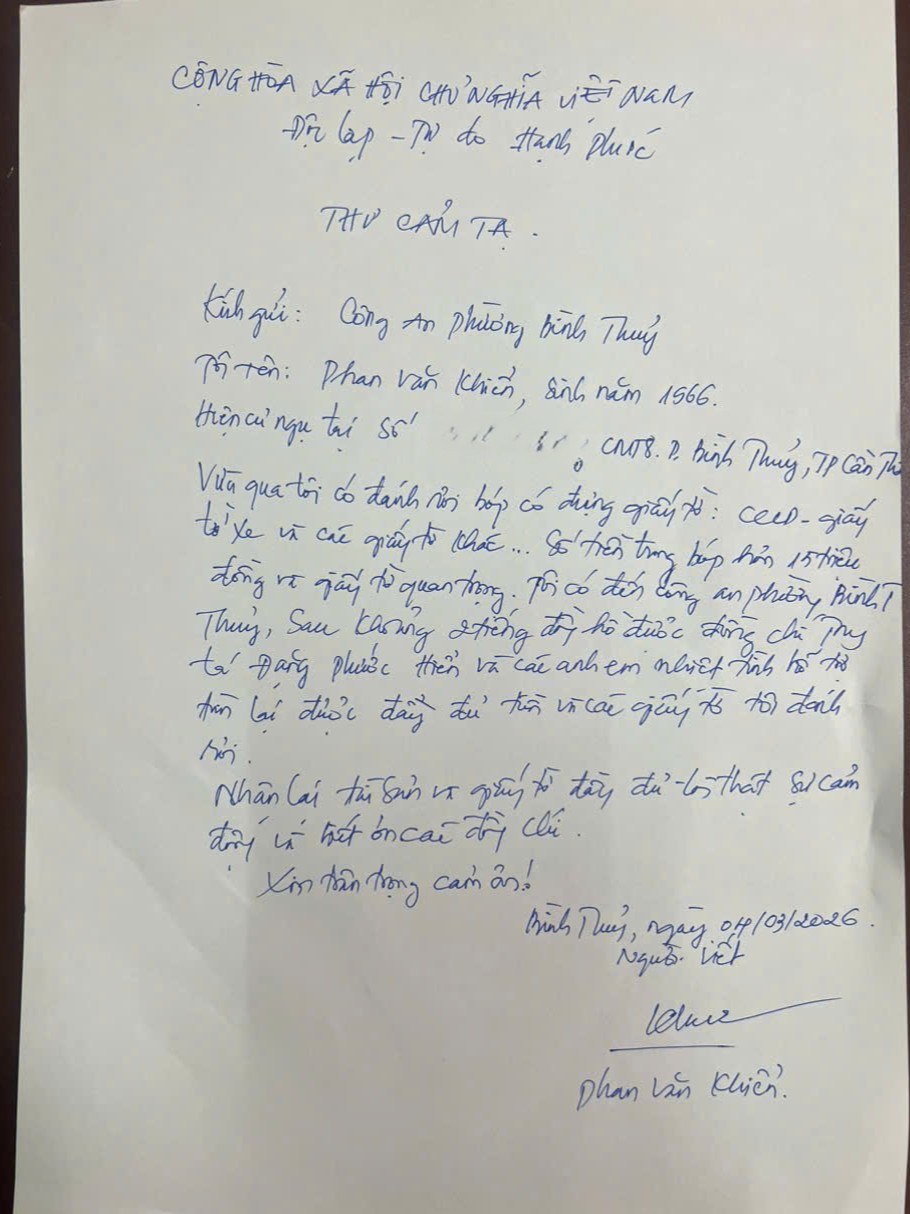 CỘNG HÒA XÃ HỘI CHỦ NGHĨA VIỆT NAM
Độc lập - Tự do Hạnh Phúc
THƯ CẢM TẠ.
Kính gửi: Công An phường Bình Thuỷ
Tôi tên: Phan Văn Khiển, Sinh năm 1966.
Hiện cư ngụ tại số
CMT8. P. Bình Thuỷ, TP Cần Thơ
Vừa qua tôi có đánh rơi bóp có đựng giấy tờ: CCCD - giấy
tờ xe và các giấy tờ khác... Số tiền trong bóp hơn 15 triệu
đồng và giấy tờ quan trọng. Tôi có đến công an phường Bình T
Thuỷ, Sau khoảng 2 tiếng đồng hồ được đồng chí Trung
tá Đặng Phước Hiển và các anh em nhiệt tình hỗ trợ
tìm lại được đầy đủ tiền và các giấy tờ tôi đánh
rơi.
Nhận lại tài sản và giấy tờ đầy đủ tôi thật sự cảm
động và biết ơn các đồng chí.
Xin trân trọng cảm ơn!
Bình Thuỷ, ngày 04/03/2026.
Người viết
Phan Văn Khiển.